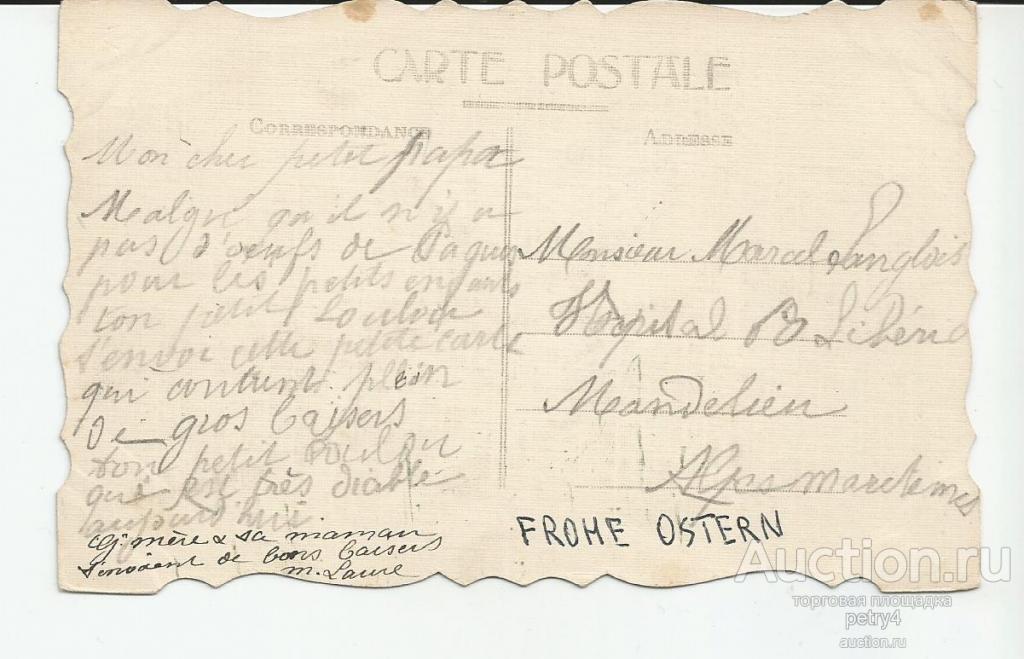 CARTE POSTALE
CORRESPONDANCE
ADRESSE
Mon cher petit papa
Malgré qu'il n'y a
pas d'oeufs de Paques
pour les petits enfants
ton petit Loulou
t'envoi cette petite carte
qui contient plein
De gros baisers
ton petit Loulou
qui est très diable
aujourd'hui
mère & sa maman
t'envoient de bons baisers
M. Laure
Monsieur Marcel Langlois
Hopital
Mandelieu
Alpes maritimes
FROHE OSTERN
Auction.ru
торговая площадка
petry4
auction.ru